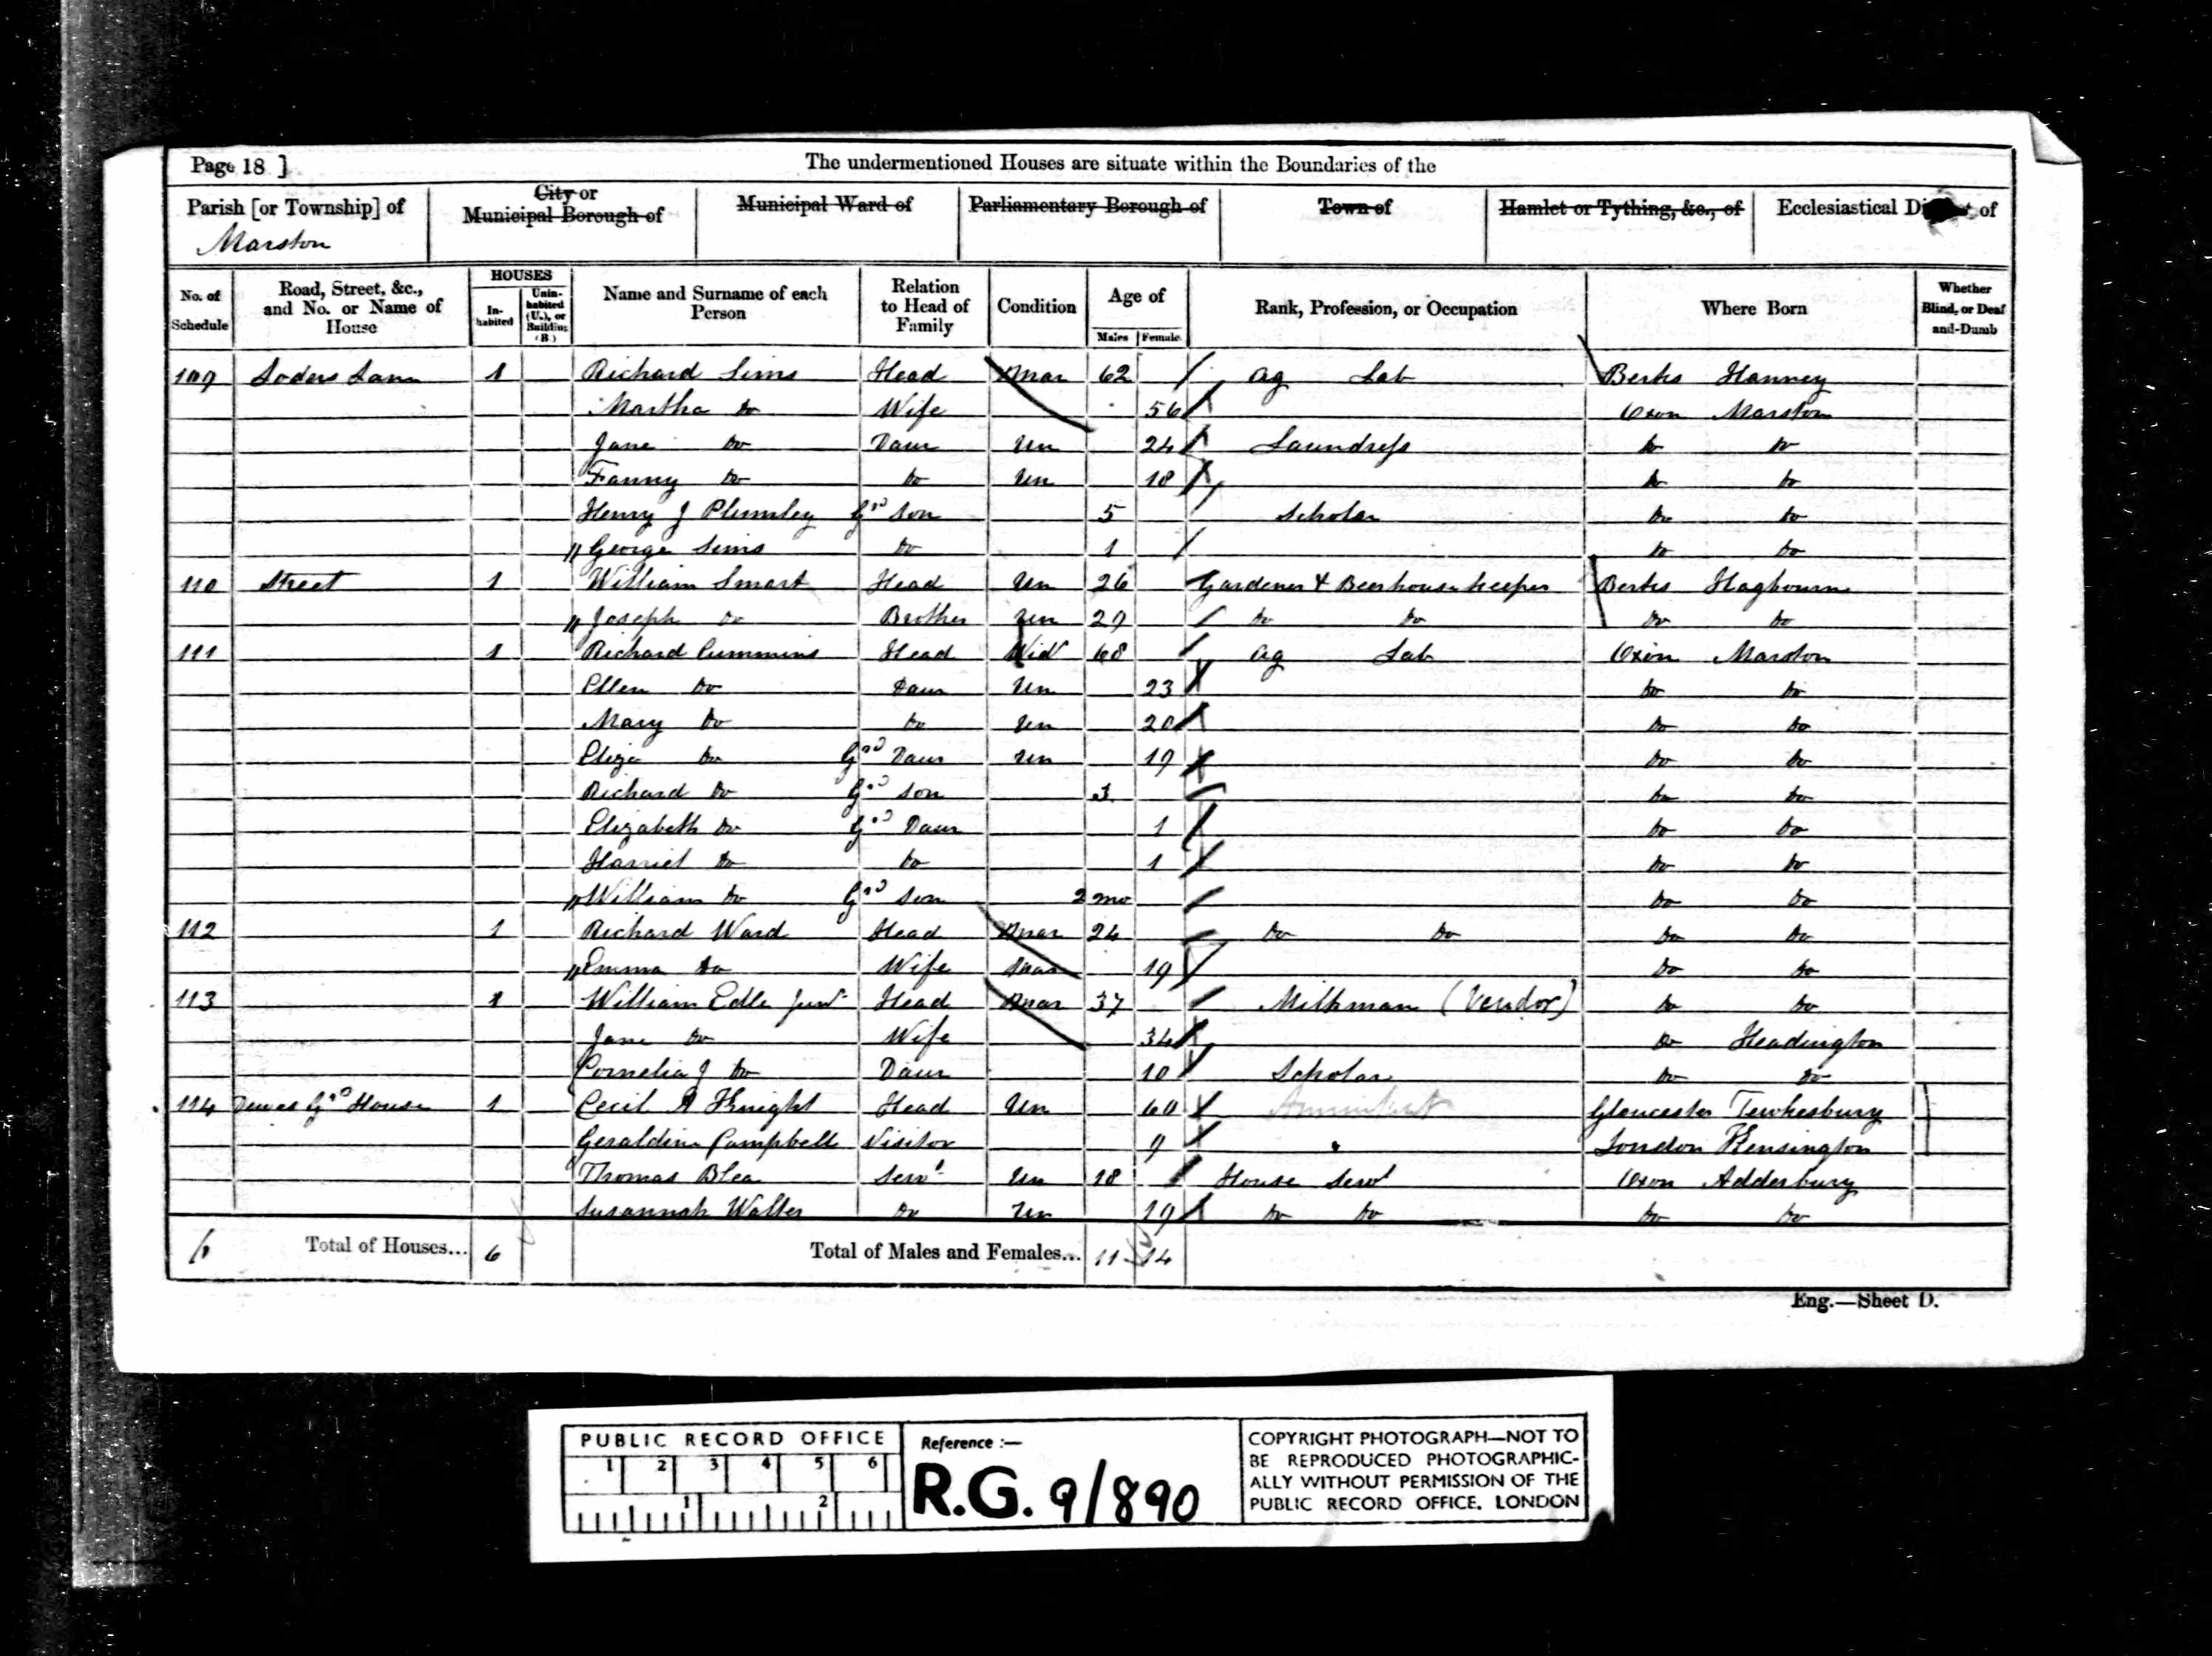 Page 18 ]
The undermentioned Houses are situate within the Boundaries of the
Parish [or Township] of Marston
City or Municipal Borough of
Municipal Ward of
Parliamentary Borough of
Town of
Hamlet or Tything, &c., of
Ecclesiastical District of
No. of Schedule
Road, Street, &c., and No. or Name of House
HOUSES
In-habited
Unin-habited (U.), or Building (B.)
Name and Surname of each Person
Relation to Head of Family
Condition
Age of
Males
Female
Rank, Profession, or Occupation
Where Born
Whether Blind, or Deaf and-Dumb
109 Lane 1 Richard Sims Head Mar 62 Ag Lab Berks Hanney
Martha Do Wife 56 Oxon Marston
Jane Do Daur Un 24 Laundress Do Do
Fanny Do Do Un 18 Do Do
Henry J Plumley Grd Son 5 Scholar Do Do
" George Sims Do 1 Do Do
110 Street 1 William Smart Head Un 26 Gardener & Beerhouse keeper Berks Hagbourn
" Joseph Do Brother Un 29 Do Do Do Do
111 1 Richard Cummins Head Widr 68 Ag Lab Oxon Marston
Ellen Do Daur Un 23 Do Do
Mary Do Do Un 20 Do Do
Eliza Do Grd Daur Un 19 Do Do
Richard Do Grd Son 3 Do Do
Elizabeth Do Grd Daur 1 Do Do
Harriet Do Do 1 Do Do
" William Do Grd Son 2 mo Do Do
112 1 Richard Ward Head Mar 24 Do Do Do Do
" Emma Do Wife Mar 19 Do Do
113 1 William Edle Junr Head Mar 37 Milkman (Vendor) Do Do
Jane Do Wife 34 Do Headington
Cornelia J Do Daur 10 Scholar Do Do
114 House 1 Cecil A Knight Head Un 60 Annuitant Gloucester Tewkesbury
Geraldine Campbell Visitor 9 London Kensington
Thomas Blea Servt Un 18 House Servt Oxon Adderbury
Susannah Walter Do Un 19 Do Do Do Do
6 Total of Houses... 6 Total of Males and Females... 11 14
Eng.—Sheet D.
PUBLIC RECORD OFFICE
1 2 3 4 5 6
1 2
Reference :—
R.G. 9/890
COPYRIGHT PHOTOGRAPH—NOT TO
BE REPRODUCED PHOTOGRAPHIC-
ALLY WITHOUT PERMISSION OF THE
PUBLIC RECORD OFFICE, LONDON